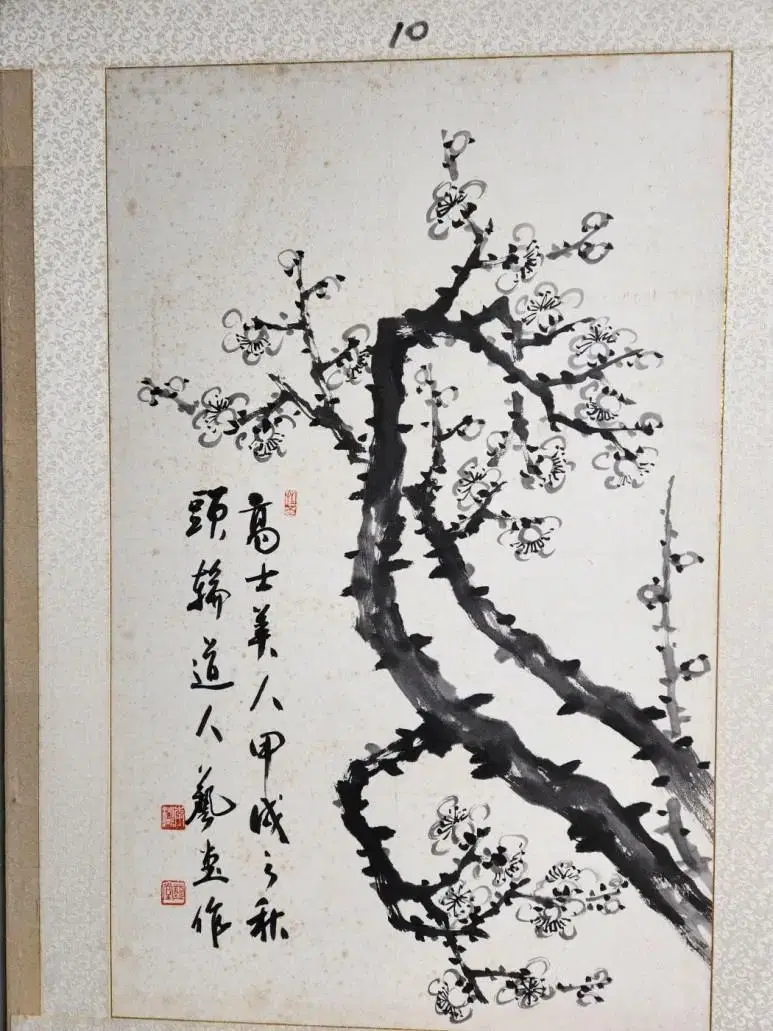 10
高士美人甲戌之秋
頭輪道人藝堂作